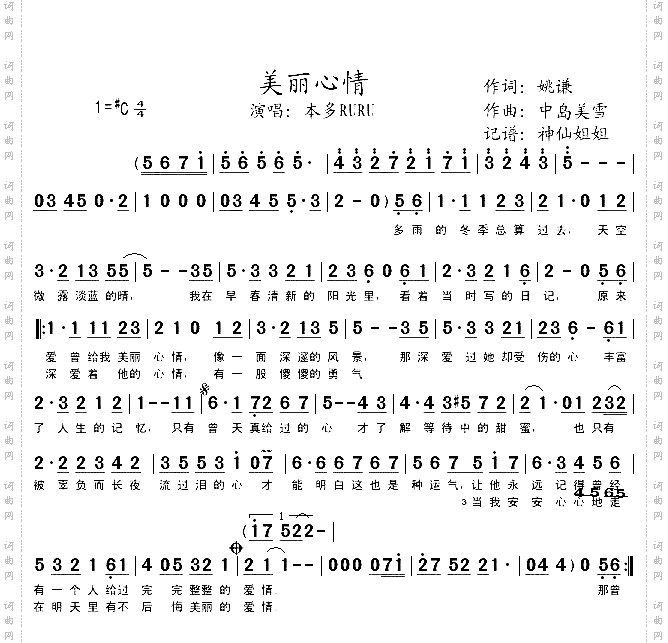 美丽心情
作词：姚谦
1=#C 4/4
演唱：本多RURU
作曲：中岛美雪
记谱：神仙姐姐
(5 6 7 1 | 5 6 5 6 5 · | 4 3 2 7 2 1 7 1 | 3 2 4 3 | 5 - - - |
03 45 0·2 | 1 0 0 0 | 03 45 5·3 | 2 - 0) 5 6 | 1·1 1 23 | 2 1·0 12 |
多雨的冬季总算过去，天空
3·2 13 55 | 5 - - 35 | 5·3 3 2 1 | 2 3 6 0 6 1 | 3·2 1 2 3 1 | 2 - 0 5 6 |
微露淡蓝的晴，我在早春清新的阳光里，看着当时写的日记，原来
1·1 11 23 | 2 1 0 12 | 3·2 13 55 | 5 - - 35 | 5·3 3 2 1 | 23 6 - 61 |
爱曾给我美丽心情，像一面深邃的风景，那深爱过她却受伤的心丰富
深爱着他的心情，有一股傻傻的勇气
2·3 2 1 2 | 1 - - 11 | 6·1 72 67 | 5 - - 43 | 4·4 3#5 72 | 2 1·01 232 |
了人生的记忆，只有曾天真给过的心才了解等待中的甜蜜，也只有
2·2 2 3 42 | 35 53 1 07 | 6·6 67 67 | 567 5 1· | 6·3 4 56 |
被辜负而长夜流过泪的心才能明白这也是种运气，让他永远记得曾经
4 5 65
3当我安安心心地走
(17 522 - |
5 3 2 1 61 | 4 05 32 1 | 2 1 1 - - | 000 071 | 27 52 21 | 04 4) 0 56 :||
有一个人给过完完整整的爱情.那曾
在明天里有不后悔美丽的爱情
词曲网